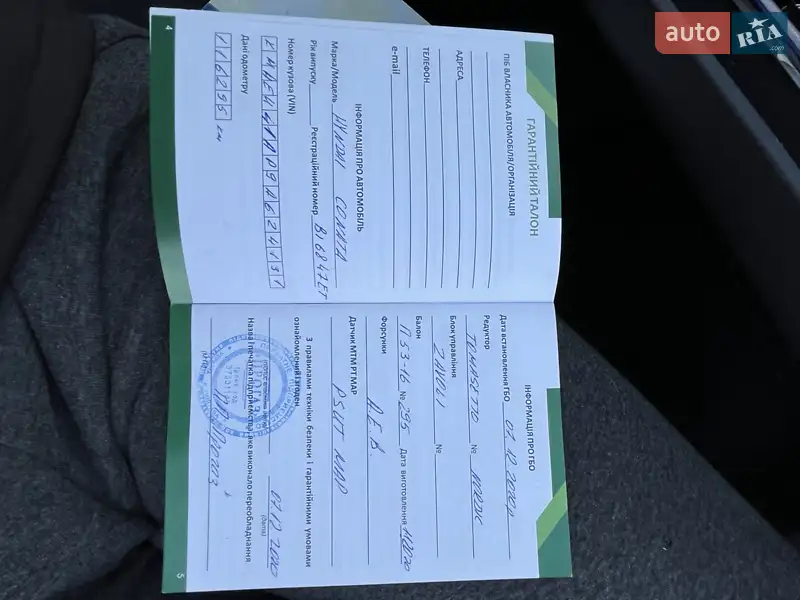 auto RIA.com
ГАРАНТІЙНИЙ ТАЛОН
ПІБ ВЛАСНИКА АВТОМОБІЛЯ/ОРГАНІЗАЦІЯ
АДРЕСА
ТЕЛЕФОН
e-mail
ІНФОРМАЦІЯ ПРО АВТОМОБІЛЬ
Марка/Модель HYNDAI СОNАТА
Рік випуску Реєстраційний номер ВІ 6847ЕТ
Номер кузова (VIN)
Дані одометру
км
4
ІНФОРМАЦІЯ ПРО ГБО
Дата встановлення ГБО 07.12.2020р
Редуктор TOMASETTO № NORDIK
Блок управління ZAVOLI №
Балон П 53-16 № 295 Дата виготовлення
Форсунки A.E.B.
Датчик МТМ РТ МАР PSUT MAP
З правилами техніки безпеки і гарантійними умовами
ознайомлений і згоден
07.12 2020
(дата)
Назва і печатка підприємства, яке виконало переобладнання
5